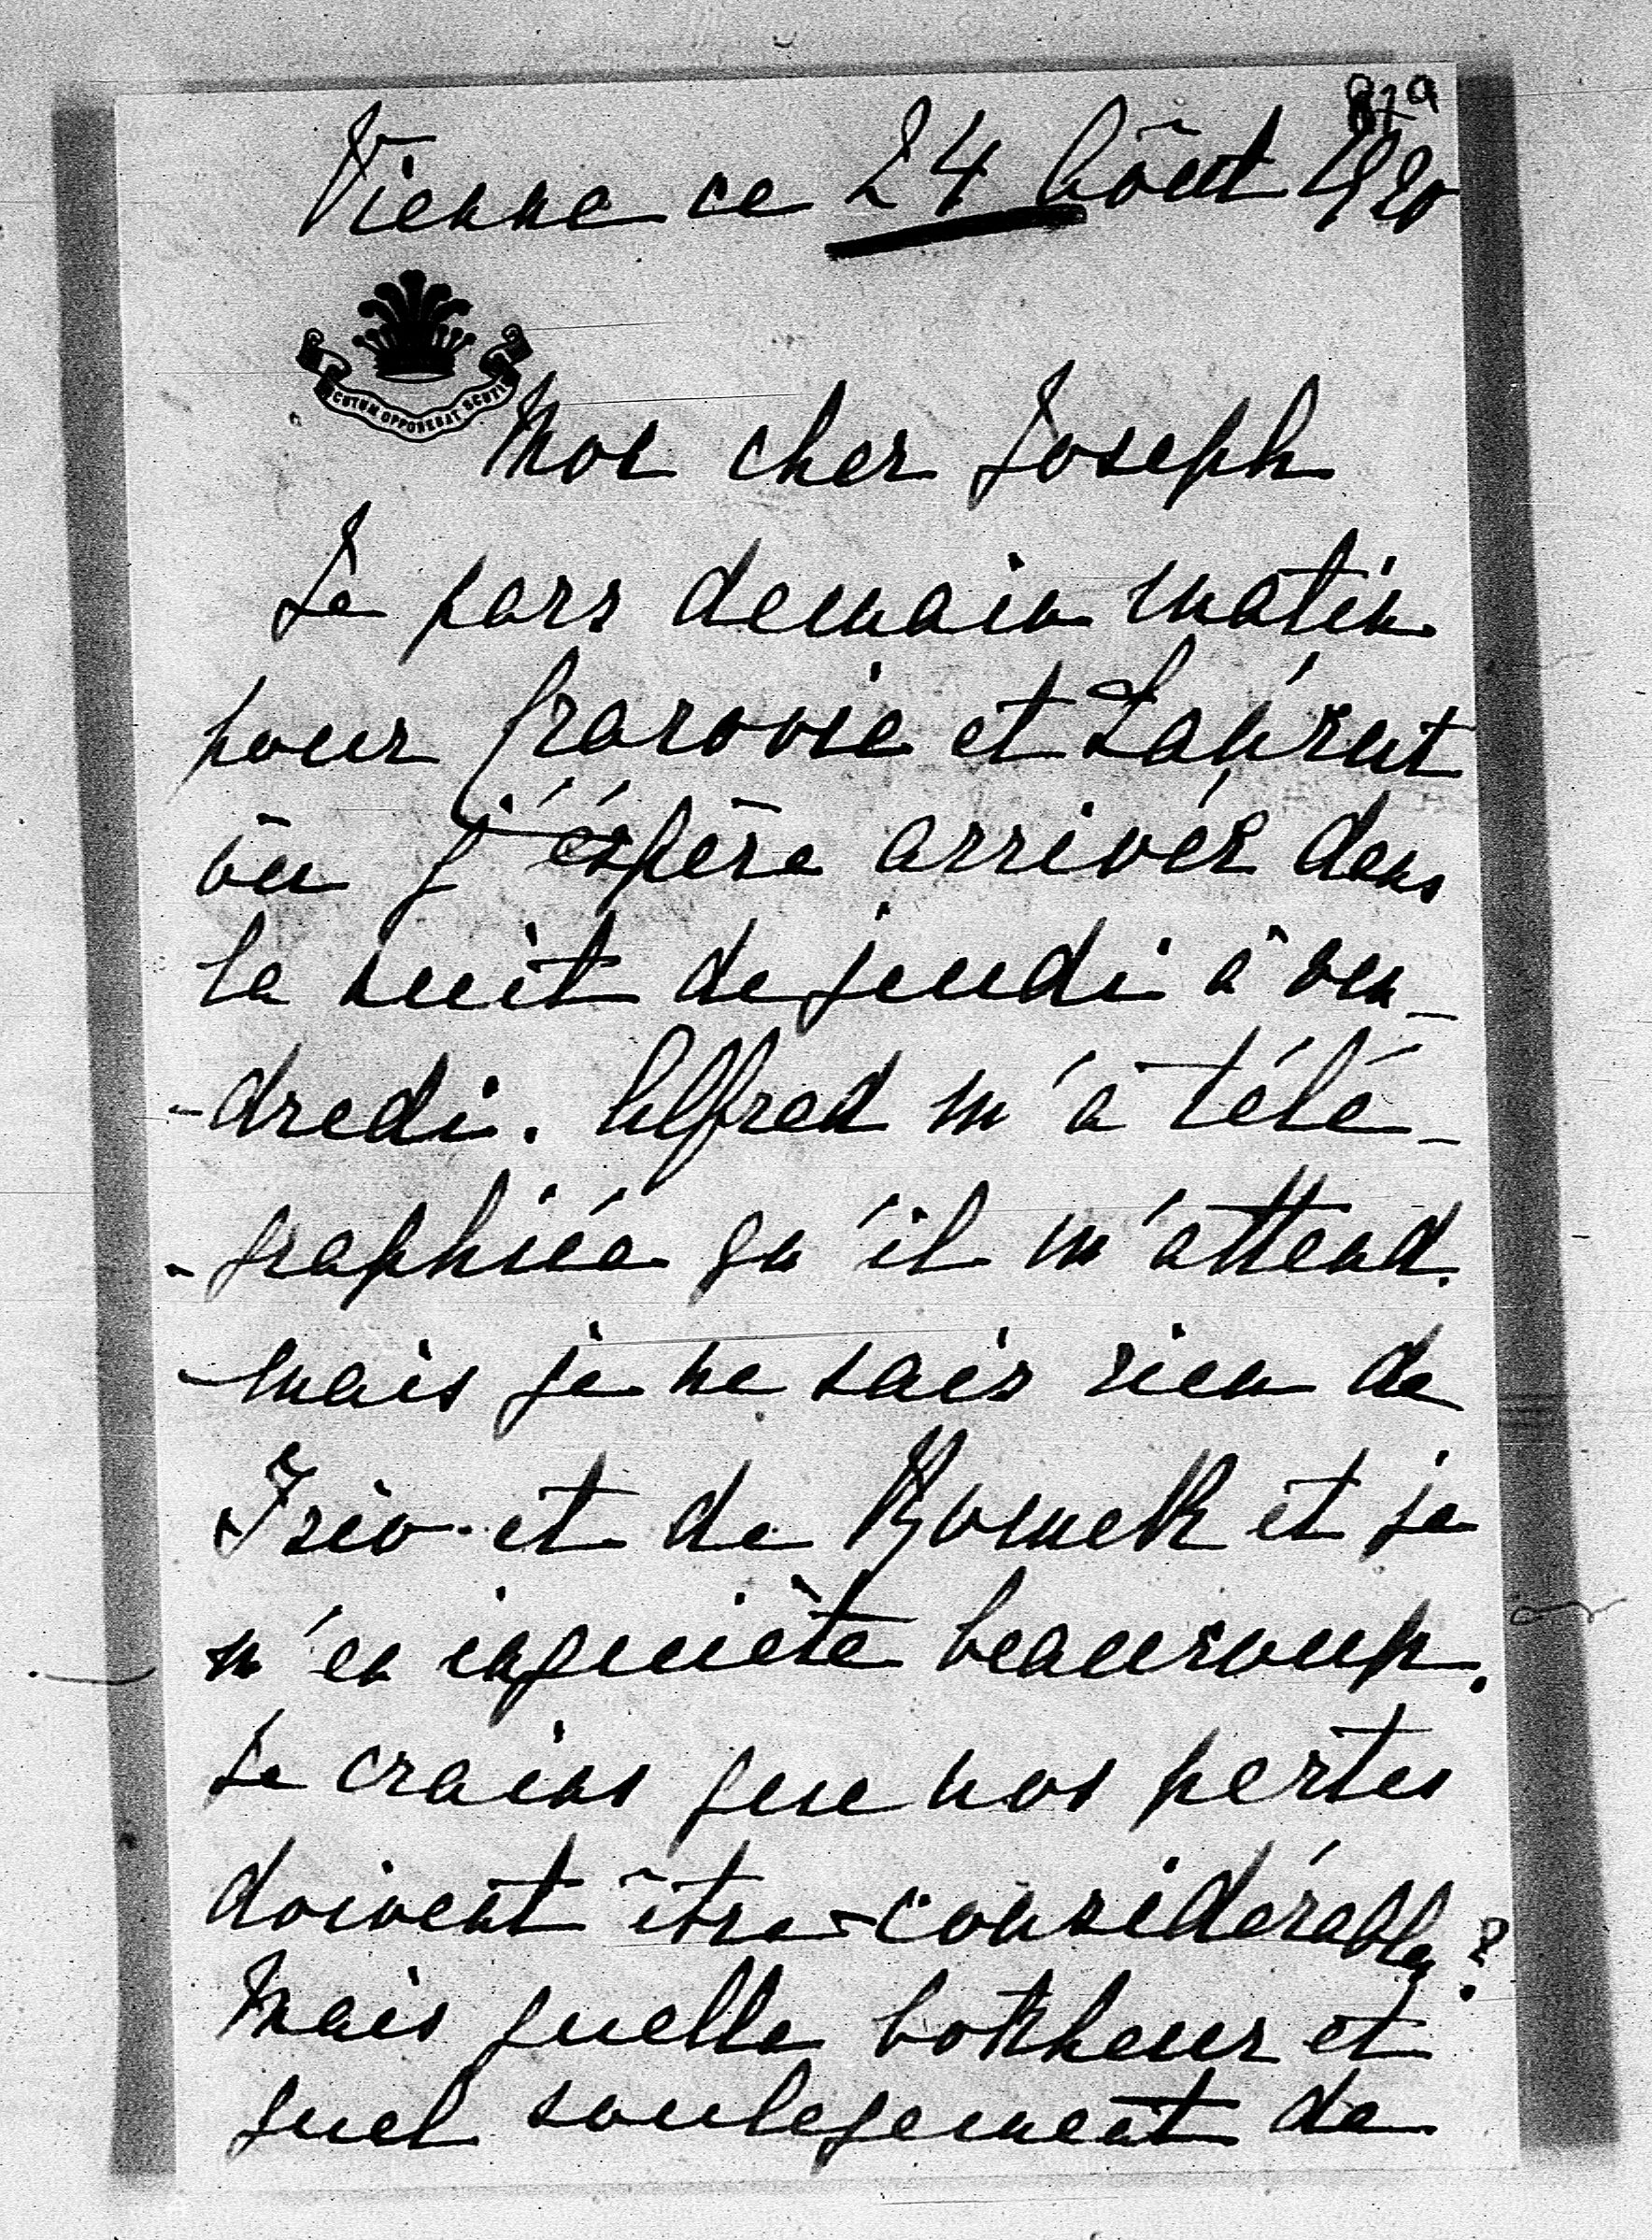 87a
Vienne ce 24 Aôut 1920
SCUTUM OPPONEBAT SCUTIS
Mon cher Joseph
Je pars demain matin
pour Cracovie et Lançut
òu j'éspère arriver dans
la nuit de jeudi à ven-
-dredi. Alfred m'a télé-
-graphiée qu'il m'attend.
-mais je ne sais rien de
et de Romek et je
m'en inquiète beaucoup.
Je crains que nos pertes
doivent être considérables?
Mais quelle bonheur et
quel soulegement de